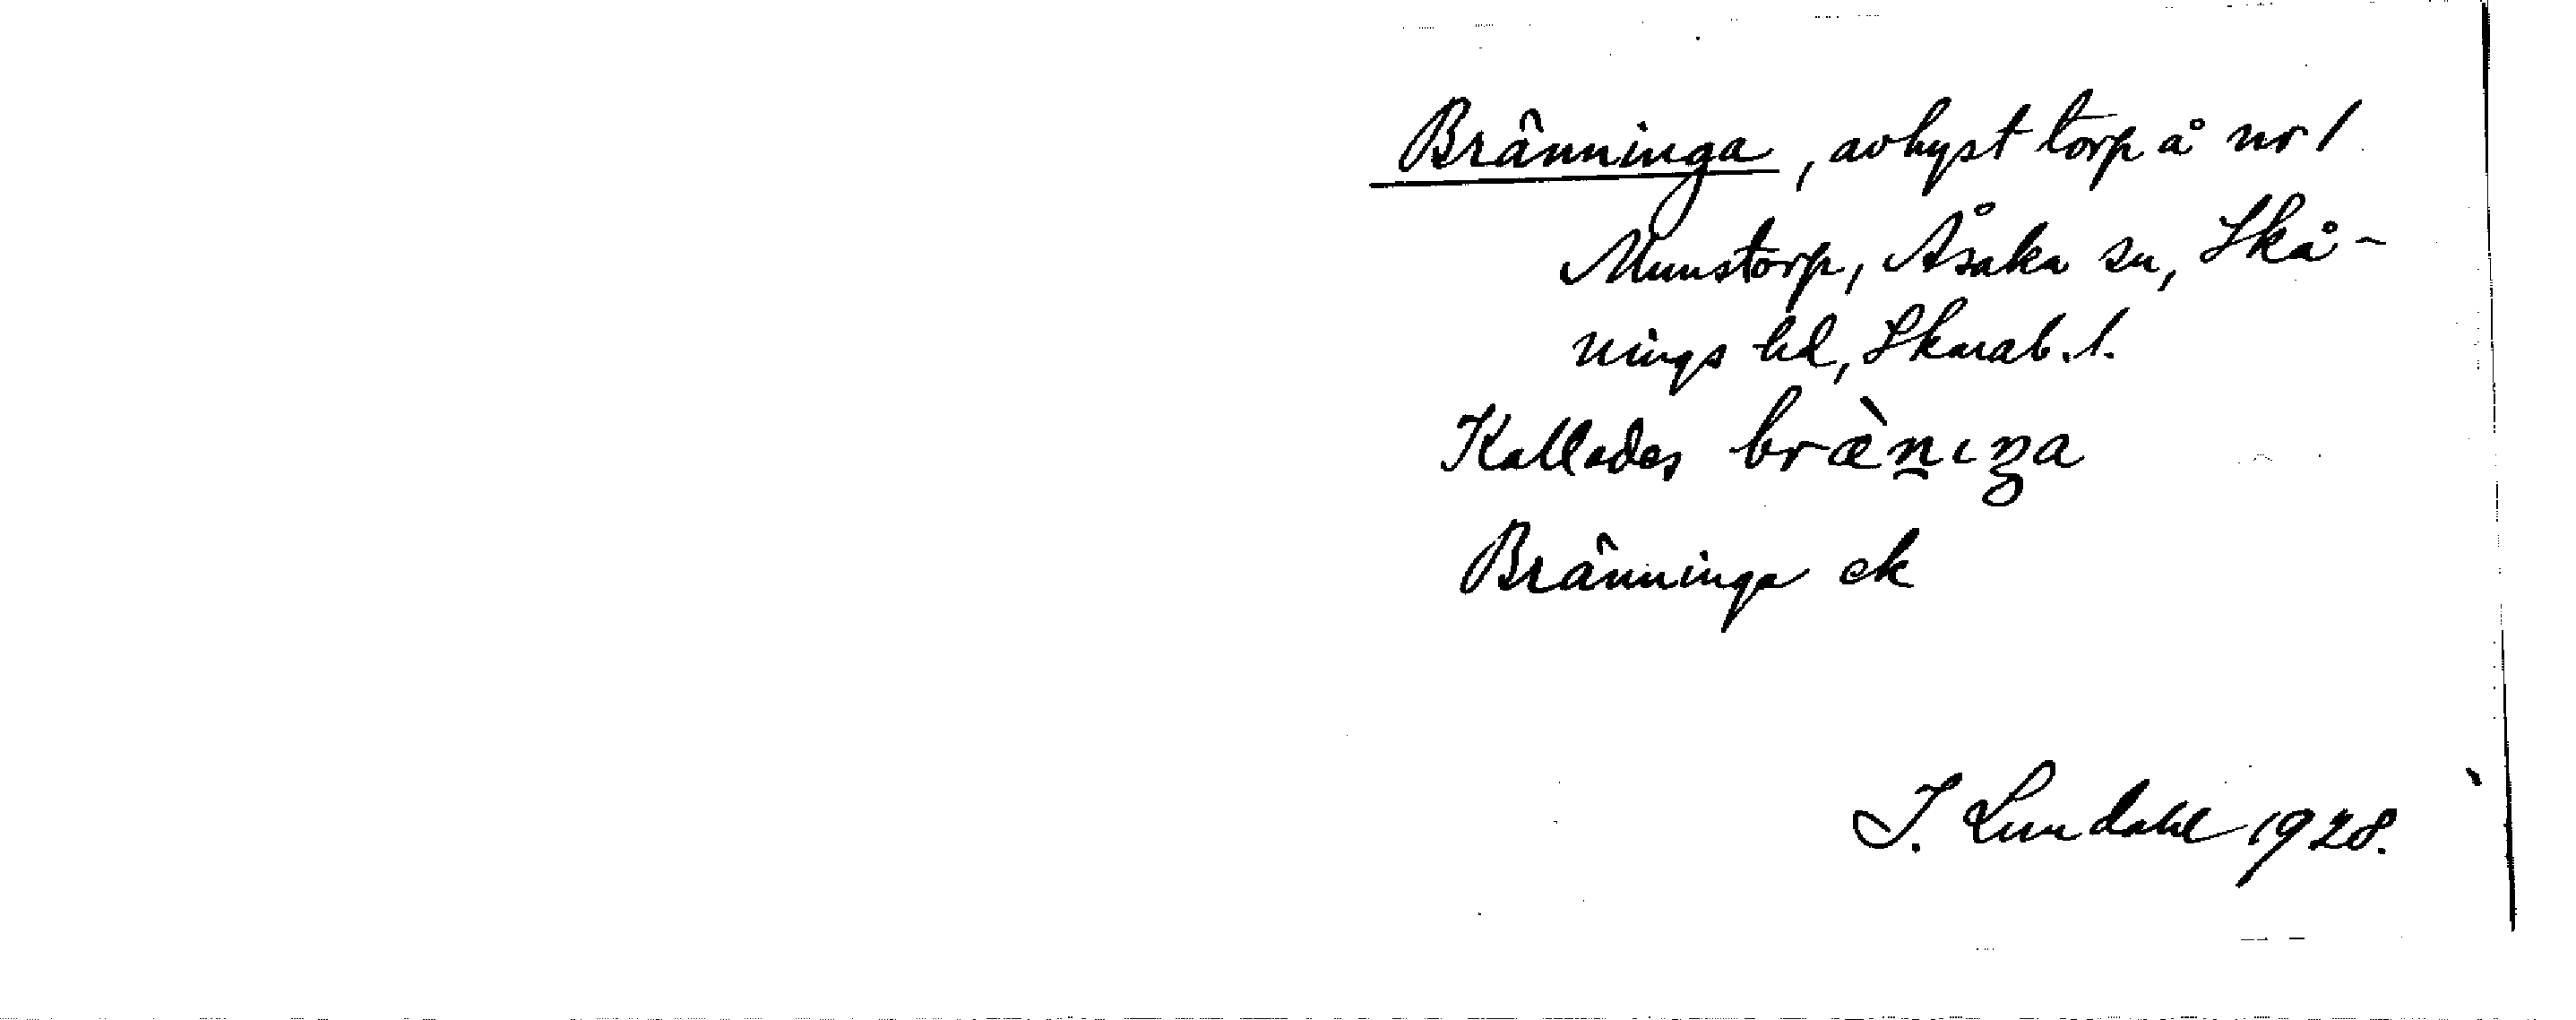 Bränninga, avhyst torp å nr 1
Munstorp, Åsaka sn, Skå-
nings hd, Skarab. l.
Kallades bræ̀n̠ıŋa
Bränninga ek
I. Lundahl 1928.